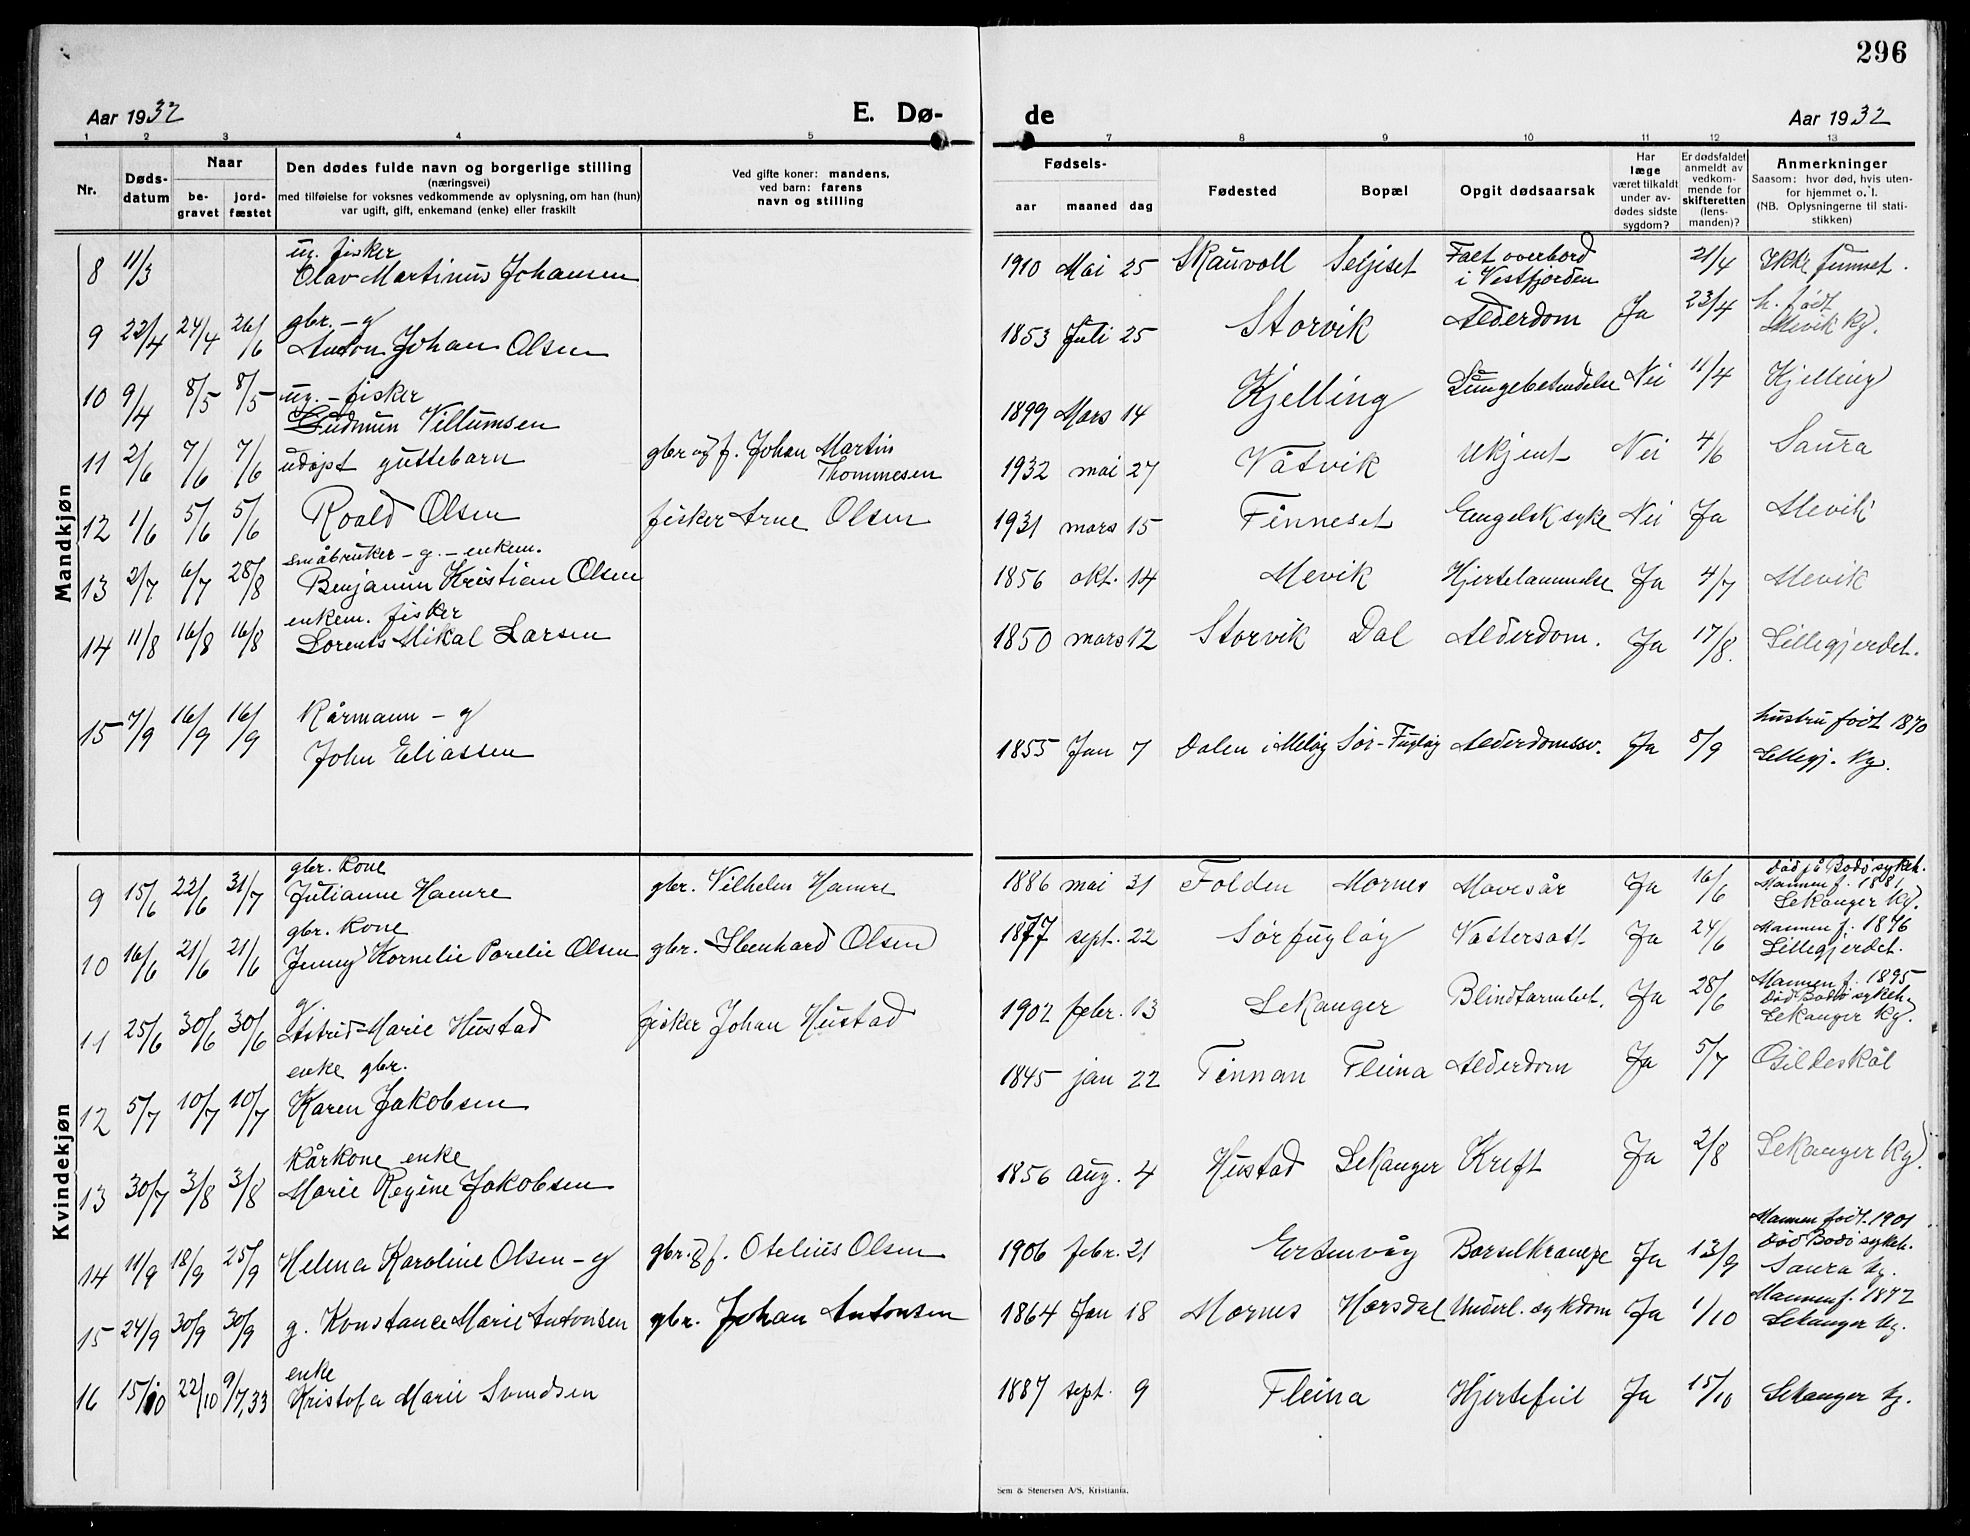 296
Aar 1932
E. Dø-
de
Aar 1932
1 2 3 4 5 7 8 9 10 11 12 13
Nr.
Døds-
datum
Naar
be-
gravet
jord-
fæstet
Den dødes fulde navn og borgerlige stilling
(næringsvei)
med tilføielse for voksnes vedkommende av oplysning, om han (hun)
var ugift, gift, enkemand (enke) eller fraskilt
Ved gifte koner: mandens,
ved barn: farens
navn og stilling
Fødsels-
aar maaned dag
Fødested
Bopæl
Opgit dødsaarsak
Har
læge
været tilkaldt
under av-
dødes sidste
sygdom?
Er dødsfaldet
anmeldt av
vedkom-
mende for
skifteretten
(lens-
manden)?
Anmerkninger
Saasom: hvor død, hvis uten-
for hjemmet o. l.
(NB. Oplysningerne til stati-
stikken)
Mandkjøn
ug. fisker
8 11/3 Olav Martinus Johansen 1910 Mai 25 Skauvoll Seljeset Falt overbord
i Vestfjorden 21/4 Ikke funnet.
gbr. - g
9 22/4 24/4 26/6 Anton Johan Olsen 1853 Juli 25 Storvik Alderdom Ja 23/4 h. født
Mevik kg.
ug. - fisker
10 9/4 8/5 8/5 Gudmun Villumsen 1899 Mars 14 Kjelling Lungebetendelse Nei 11/4 Kjelling
11 2/6 7/6 7/6 udøpt guttebarn gbr og f. Johan Martin
Thommesen 1932 mai 27 Våtvik Ukjent Nei 4/6 Saura
12 1/6 5/6 5/6 Roald Olsen fisker Arne Olsen 1931 mars 15 Finneset Engelsk syke Nei Ja Mevik
småbruker - g. - enkem.
13 2/7 6/7 28/8 Benjamin Kristian Olsen 1856 okt. 14 Mevik Hjertelammelse Ja 4/7 Mevik
enkem. fisker
14 11/8 16/8 16/8 Lorents Mikal Larsen 1850 mars 12 Storvik Dal Alderdom. Ja 17/8. Lillegjerdet.
Kårmann - g
15 7/9 16/9 16/9 John Eliassen 1855 Jan 7 Dalen i Meløy Sør-Fugløy Alderdomssv. Ja 8/9 hustru født 1870
Lillegj. kg.
Kvindekjøn
gbr. kone
9 15/6 22/6 31/7 Julianne Hamre gbr. Vilhelm Hamre 1886 mai 31 Folden Mørnes Mavesår Ja 16/6 død på Bodø sykeh.
Mannen f. 1881
Lekanger kg.
gbr. kone
10 16/6 21/6 21/6 Jenny Kornelie Porelie Olsen gbr. Ibenhard Olsen 1877 sept. 22 Sørfugløy Vattersott Ja 24/6 Mannen f. 1876
Lillegjerdet.
g.
11 25/6 30/6 30/6 Astrid-Marie Hustad fisker Johan Hustad 1902 febr. 13 Lekanger Blindtarmbet. Ja 28/6 Mannen f. 1895
død Bodø sykeh.
Lekanger kg.
enke gbr.
12 5/7 10/7 10/7 Karen Jakobsen 1845 jan 22 Finnan Fleina Alderdom Ja 5/7 Gildeskål
kårkone enke
13 30/7 3/8 3/8 Marie Regine Jakobsen 1856 aug. 4 Hustad Lekanger Kreft Ja 2/8 Lekanger kg.
14 11/9 18/9 25/9 Helena Karoline Olsen - g gbr. g f. Otelius Olsen 1906 febr. 21 Ertenvåg Barselkrampe Ja 13/9 Mannen født 1901
død Bodø sykeh.
Saura kg.
15 24/9 30/9 30/9 g. Konstance Marie Antonsen gbr. Johan Antonsen 1864 Jan 18 Mørnes Horsdal Underl. sykdom Ja 1/10 Mannen f. 1872
Lekanger kg.
enke
16 15/10 22/10 9/7, 33 Kristofa Marie Svendsen 1887 sept. 9 Fleina Hjertefeil Ja 15/10 Lekanger kg.
Sem & Stenersen A/S, Kristiania.